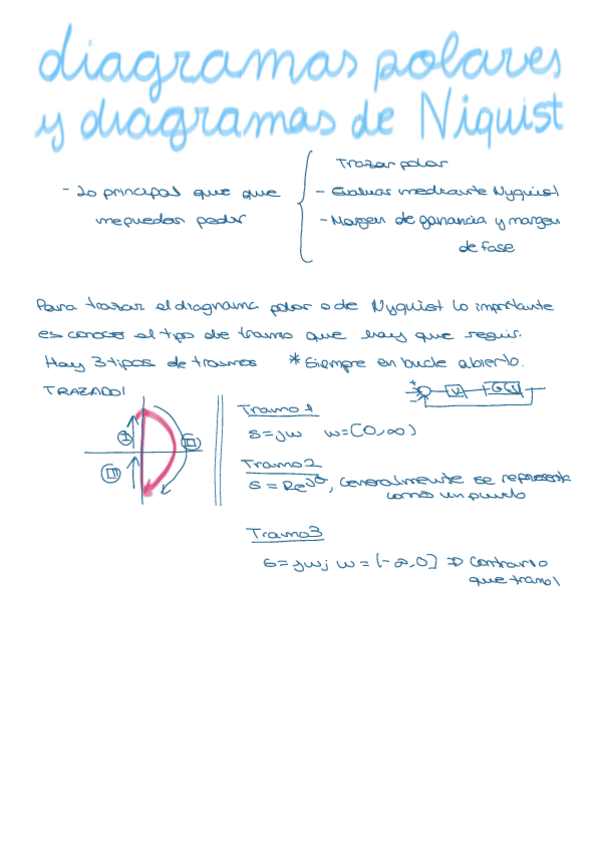 diagramas polares
y diagramas de Niquist
- Lo principal que que
me puedan pedir
Trazar polar
- Evaluar mediante Nyquist
- Margen de ganancia y margen
de fase
Para trazar el diagrama polar o de Nyquist lo importante
es conocer el tipo de tramo que hay que seguir.
Hay 3 tipos de tramos * Siempre en bucle abierto.
TRAZADO!
+
-
K
I
II
III
Tramo 1
s=jw w=[0,∞)
Tramo 2
s=Re^jθ, Generalmente se representa
como un punto
Tramo 3
s=jw; w=(-∞,0] ⇒ Contrario
que tramo 1